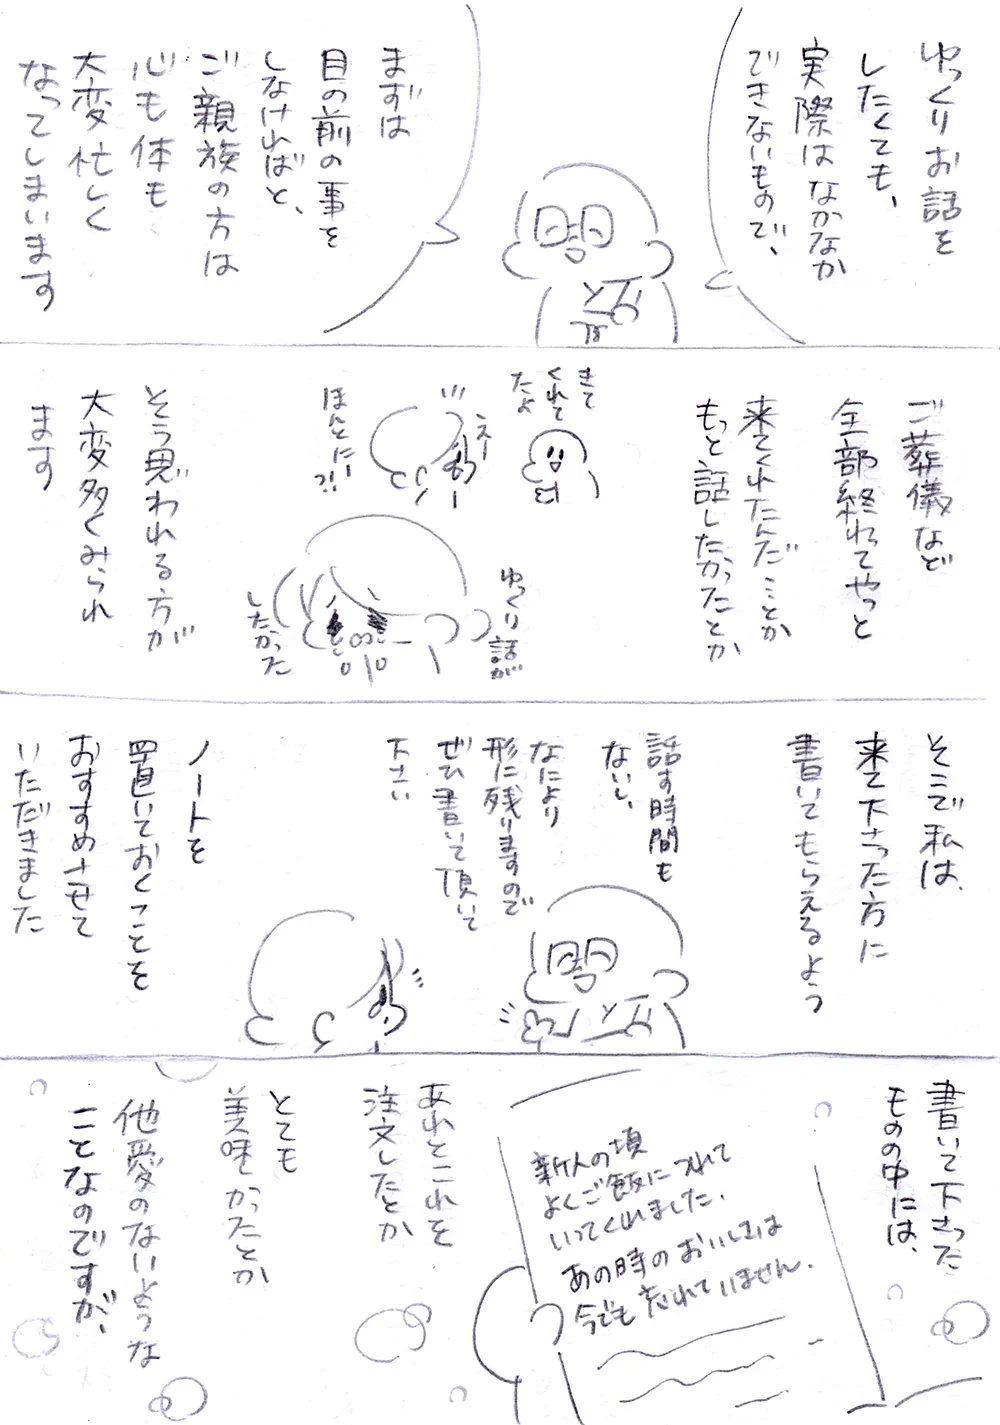 ゆっくりお話を
したくても、
実際はなかなか
できないもので、
まずは
目の前の事を
しなければと、
ご親族の方は
心も体も
大変忙しく
なってしまいます
ご葬儀など
全部終わってやっと
来てくれたんだ…とか
もっと話したかったとか
きて
くれて
たよ
えー
ほんとに!?
ゆっくり話が
したかった
そう思われる方が
大変多くみられ
ます
そこで私は、
来て下さった方に
書いてもらえるよう
話す時間も
ないし、
なにより
形に残りますので
ぜひ書いて頂いて
下さい
ノートを
置いておくことを
おすすめさせて
いただきました
書いて下さった
ものの中には、
新人の頃
よくご飯につれて
いってくれました.
あの時のおいしさは
今でも忘れていません.
あれとこれを
注文したとか
とても
美味かったとか
他愛のないような
ことなのですが、